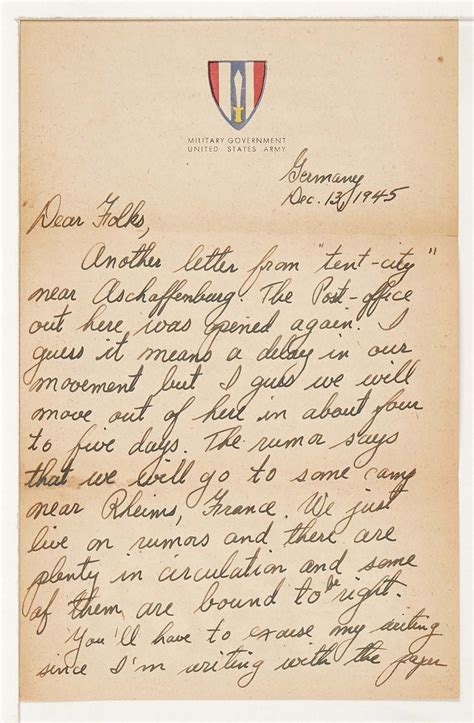 MILITARY GOVERNMENT
UNITED STATES ARMY
Germany
Dec. 13, 1945
Dear Folks,
Another letter from "tent-city"
near Aschaffenburg. The Post-office
out here was opened again. I
guess it means a delay in our
movement but I guess we will
move out of here in about four
to five days. The rumor says
that we will go to some camp
near Rheims, France. We just
live on rumors and there are
plenty in circulation and some
of them are bound to be right.
You'll have to excuse my writing
since I'm writing with the paper